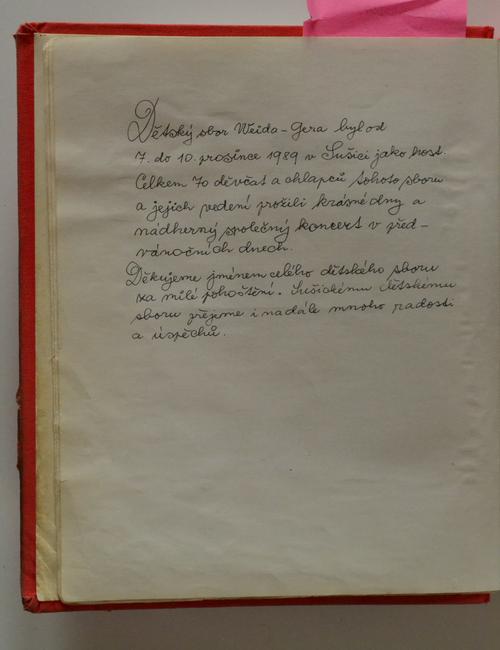 Dětský sbor Weida-Gera byl od
7. do 10. prosince 1989 v Sušici jako host.
Celkem 70 děvčat a chlapců tohoto sboru
a jejich vedení prožili krásné dny a
nádherný společný koncert v před-
vánočních dnech.
Děkujeme jménem celého dětského sboru
za milé pohoštění. Sušickému dětskému
sboru přejeme i nadále mnoho radosti
a úspěchů.